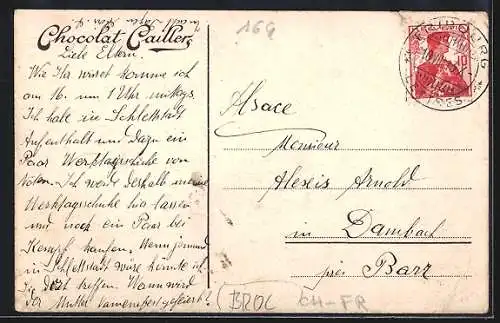 Chocolat Cailler
164
Liebe Eltern.
Wie Ihr wisset komme ich
am 16. um 1 Uhr mittags.
Ich habe in Schlettstadt
Aufenthalt und dazu ein
Paar Werktagsschuhe von
Nöten. Ich werde deshalb meine
Werktagsschuhe hier lassen
und noch ein Paar bei
kaufen. Wenn jemand
in Schlettstadt wäre könnte ich
Sie dort treffen. Wann wird
der Mutter Namensfest gefeiert?
FRIBOURG
10
Alsace
Monsieur
Alexis Arnold
in Dambach
près Barr
(BROC CH-FR